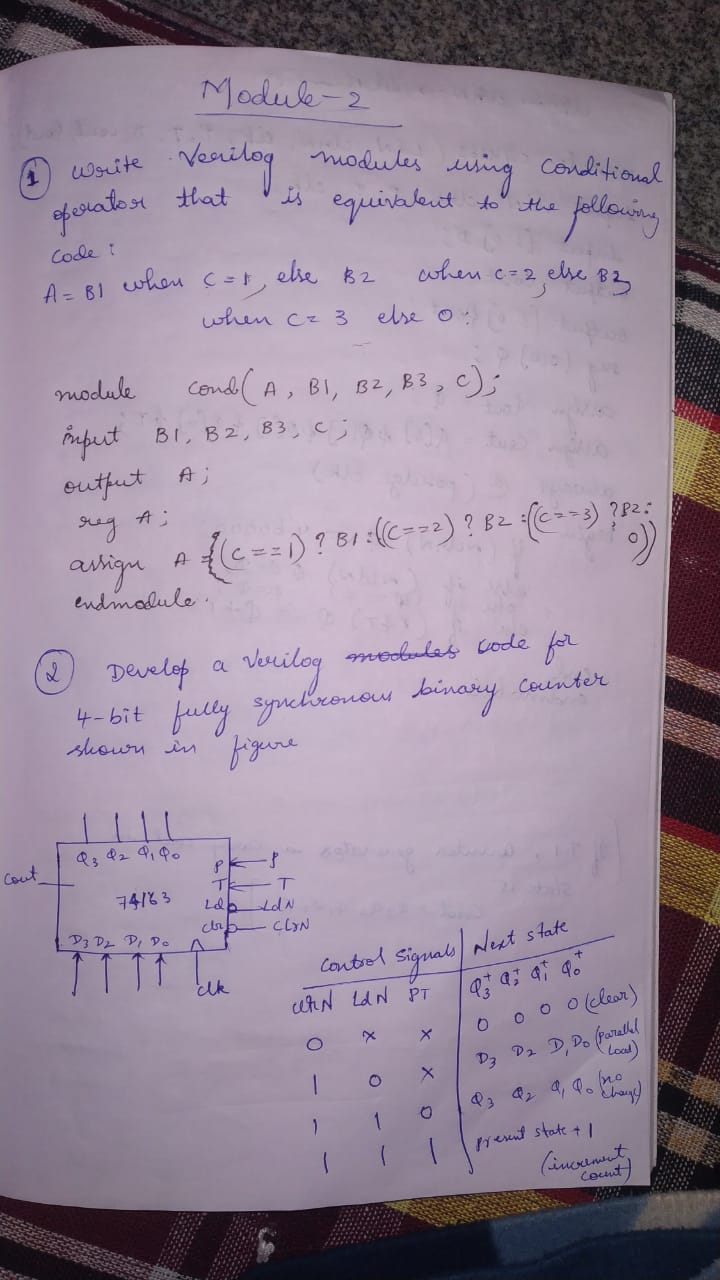 Module-2
① Write Verilog modules using conditional
operator that is equivalent to the following
code :
A = B1 when C = 1, else B2 when C = 2, else B3
when C = 3 else 0 :
module cond( A, B1, B2, B3, C);
input B1, B2, B3, C ;
output A ;
reg A ;
assign A = {(C==1) ? B1 : ((C==2) ? B2 : ((C==3) ? B2 :
0))
endmodule.
② Develop a Verilog modules code for
4-bit fully synchronous binary counter
shown in figure
Q3 Q2 Q1 Q0
Cout
74163
P P
T T
Ld LdN
clr ClrN
D3 D2 D1 D0
clk
Control Signals Next state
ClrN LdN PT Q3+ Q2+ Q1+ Q0+
0 x x 0 0 0 0 (clear)
1 0 x D3 D2 D1 D0 (parallel
load)
1 1 0 Q3 Q2 Q1 Q0 (no
change)
1 1 1 present state + 1
(increment
count)